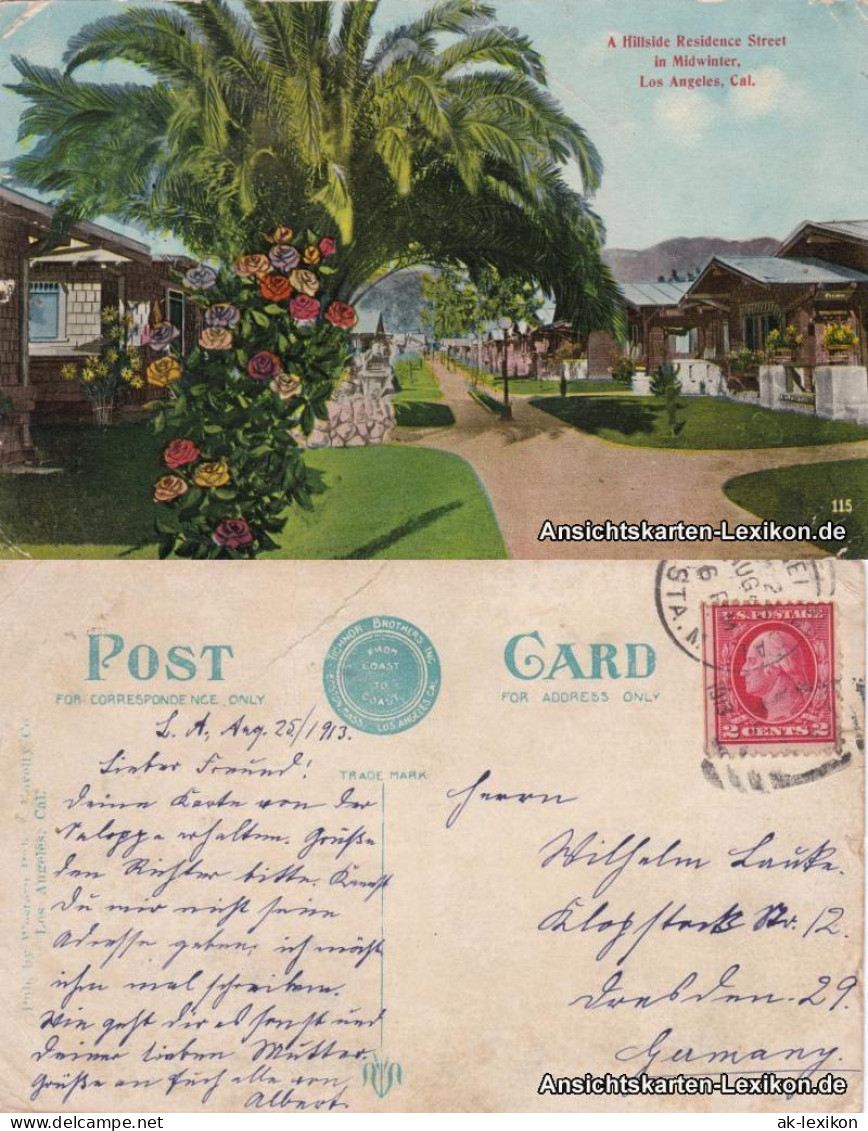 A Hillside Residence Street
in Midwinter,
Los Angeles, Cal.
115
Ansichtskarten-Lexikon.de
POST CARD
FOR CORRESPONDENCE ONLY
FOR ADDRESS ONLY
TICHNOR BROTHERS INC.
FROM
COAST
TO
COAST
BOSTON MASS. LOS ANGELES CAL.
TRADE MARK
STA. M
AUG
1913
U.S. POSTAGE
2 CENTS 2
Pub. by Western Pub. & Novelty Co.
Los Angeles, Cal.
L. A., Aug. 25/1913.
Lieber Freund!
Deine Karte von der
Saloppe erhalten. Grüße
den Richter bitte. Kannst
Du mir nicht seine
Adresse geben, ich möcht
ihm mal schreiben.
Wie geht dir es sonst und
Deiner lieben Mutter.
Grüße an Euch alle von
Albert.
Herrn
Wilhelm Lauke.
Klopstock Str. 12.
Dresden. 29.
Germany.
Ansichtskarten-Lexikon.de
ak-lexikon